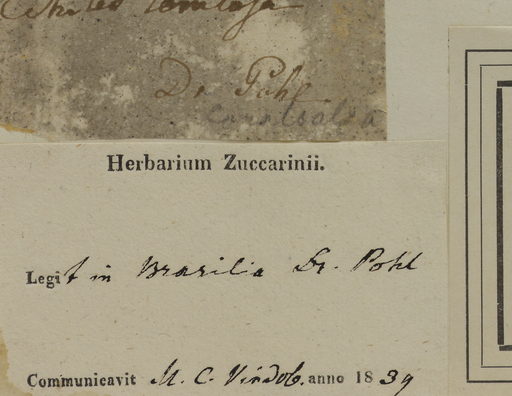 Echites tomentosa
Dr Pohl
Herbarium Zuccarinii.
Legit in Brasilia Dr. Pohl
Communicavit M. C. Vindob. anno 1839